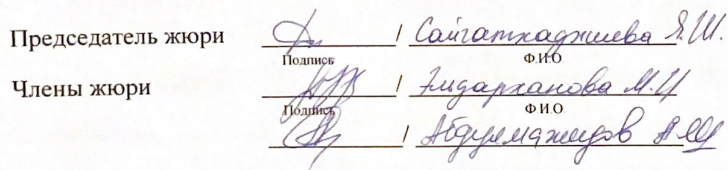 Председатель жюри / Сайгатхаджиева Я.Ш.
Подпись Ф.И.О
Члены жюри / Эмдарханова М.И
Подпись Ф И.О
/ Абдулмаджидов